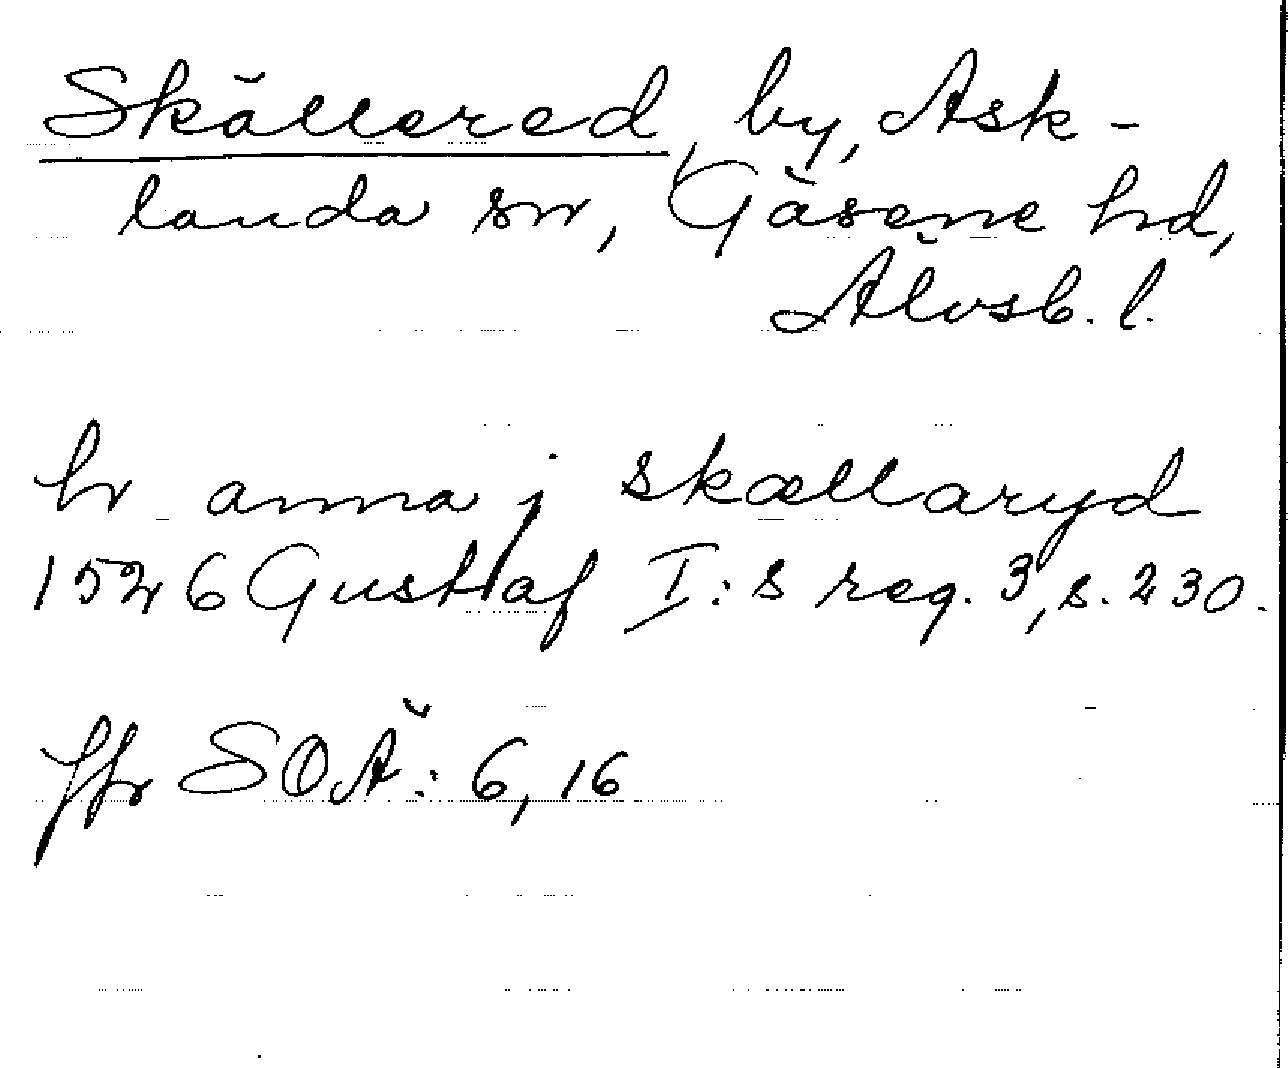 Skällered, by, Ask-
landa sn, Gäsene hd,
Älvsb. l.
hr anna j skællaryd
1526 Gustaf I:s reg. 3, s. 230.
Jfr SOÄ: 6, 16